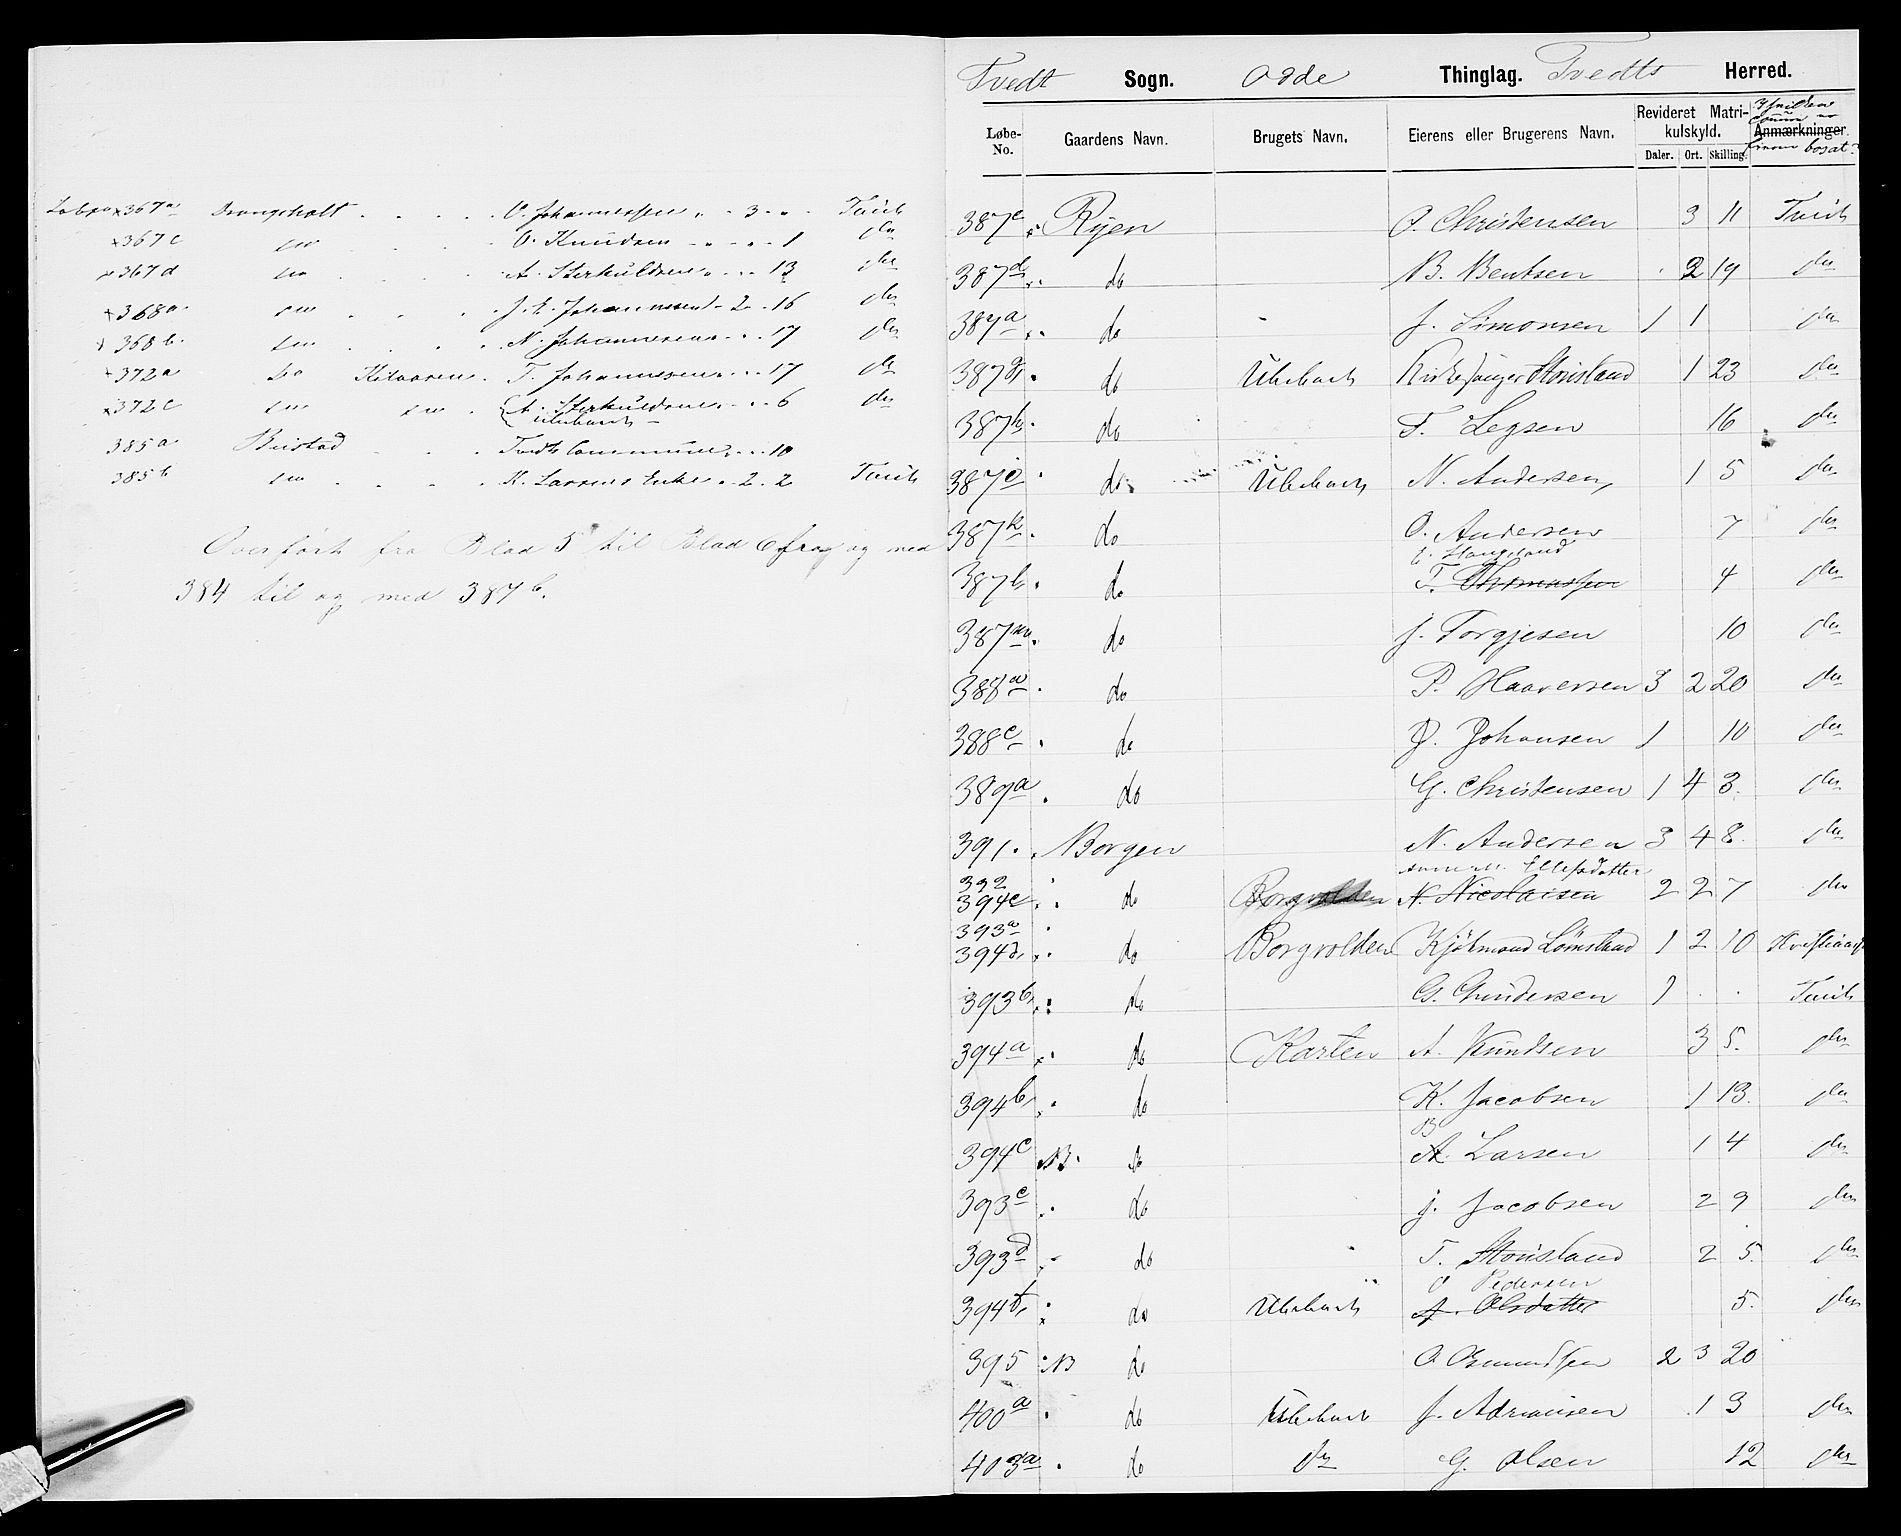 Løbno x 367a Drangsholt . . . . O. Johannessen " - 3 - " Tveit
x 367c do . . . O. Knudsen - " - " - 1 do
x 367d do . . . A. Sterkuldsen " . . 13 do
x 368a. do . . . . J. E. Johannessen - 2 - 16 do
x 368b. do . . . . N. Johannesen . . . 17 do
x 372a do Kilaasen . T. Johannesen . . . 17 do
x 372c do do . A. Sterkuldsen . - . 6 do
Ubeboet
385a Bustad . . . Tveits Commune . . . 10
385b do . . . . K. Larsens Enke . 2 . 2 Tveit
Overført fra Blad 5 til Blad 6 fra og med
384 til og med 387b.
Tvedt Sogn. Odde Thinglag. Tvedts Herred.
Løbe-No. Gaardens Navn. Brugets Navn. Eierens eller Brugerens Navn. Revideret Matrikulskyld. Anmærkninger
Daler. Ort. Skilling. bosat?
387c Ryen O. Christensen 3 11 Tveit
387d do B. Bentsen 2 19 do
387a do J. Simonsen 1 1 do
387g do Ubeboet Kirkesanger Stousland 1 23 do
387h do T. Legsen 16 do
387i do Ubeboet N. Andersen 1 5 do
387k do O. Andersen 7 do
387l do T. Thomassen 4 do
387m do J. Torgjesen 10 do
388a do P. Haaversen 3 2 20 do
388c do J. Johansen 1 10 do
389a do G. Christensen 1 4 3. do
391. Borgen N. Andersen 3 4 8. do
Ellefsdatter
392
394e do Borgvolden N. Nicolaisen 2 2 7 do
393a
394d do Borgvolden Kjøbmand Lømsland 1 2 10
393b do G. Gundersen 1 . . Tveit
394a do Karten A. Knudsen 3 5. do
394b do K. Jacobsen 1 13. do
B
394c NB. do A. Larsen 1 4 do
393c do J. Jacobsen 2 9 do
393d do T. Stousland 2 5. do
O Pedersen
394f do Ubeboet A. Olsdatter 5. do
395 NB do O Osmundsen 2 3 20
400a do Ubeboet J. Adriansen 1 3 do
403a do do G. Olsen 12 do